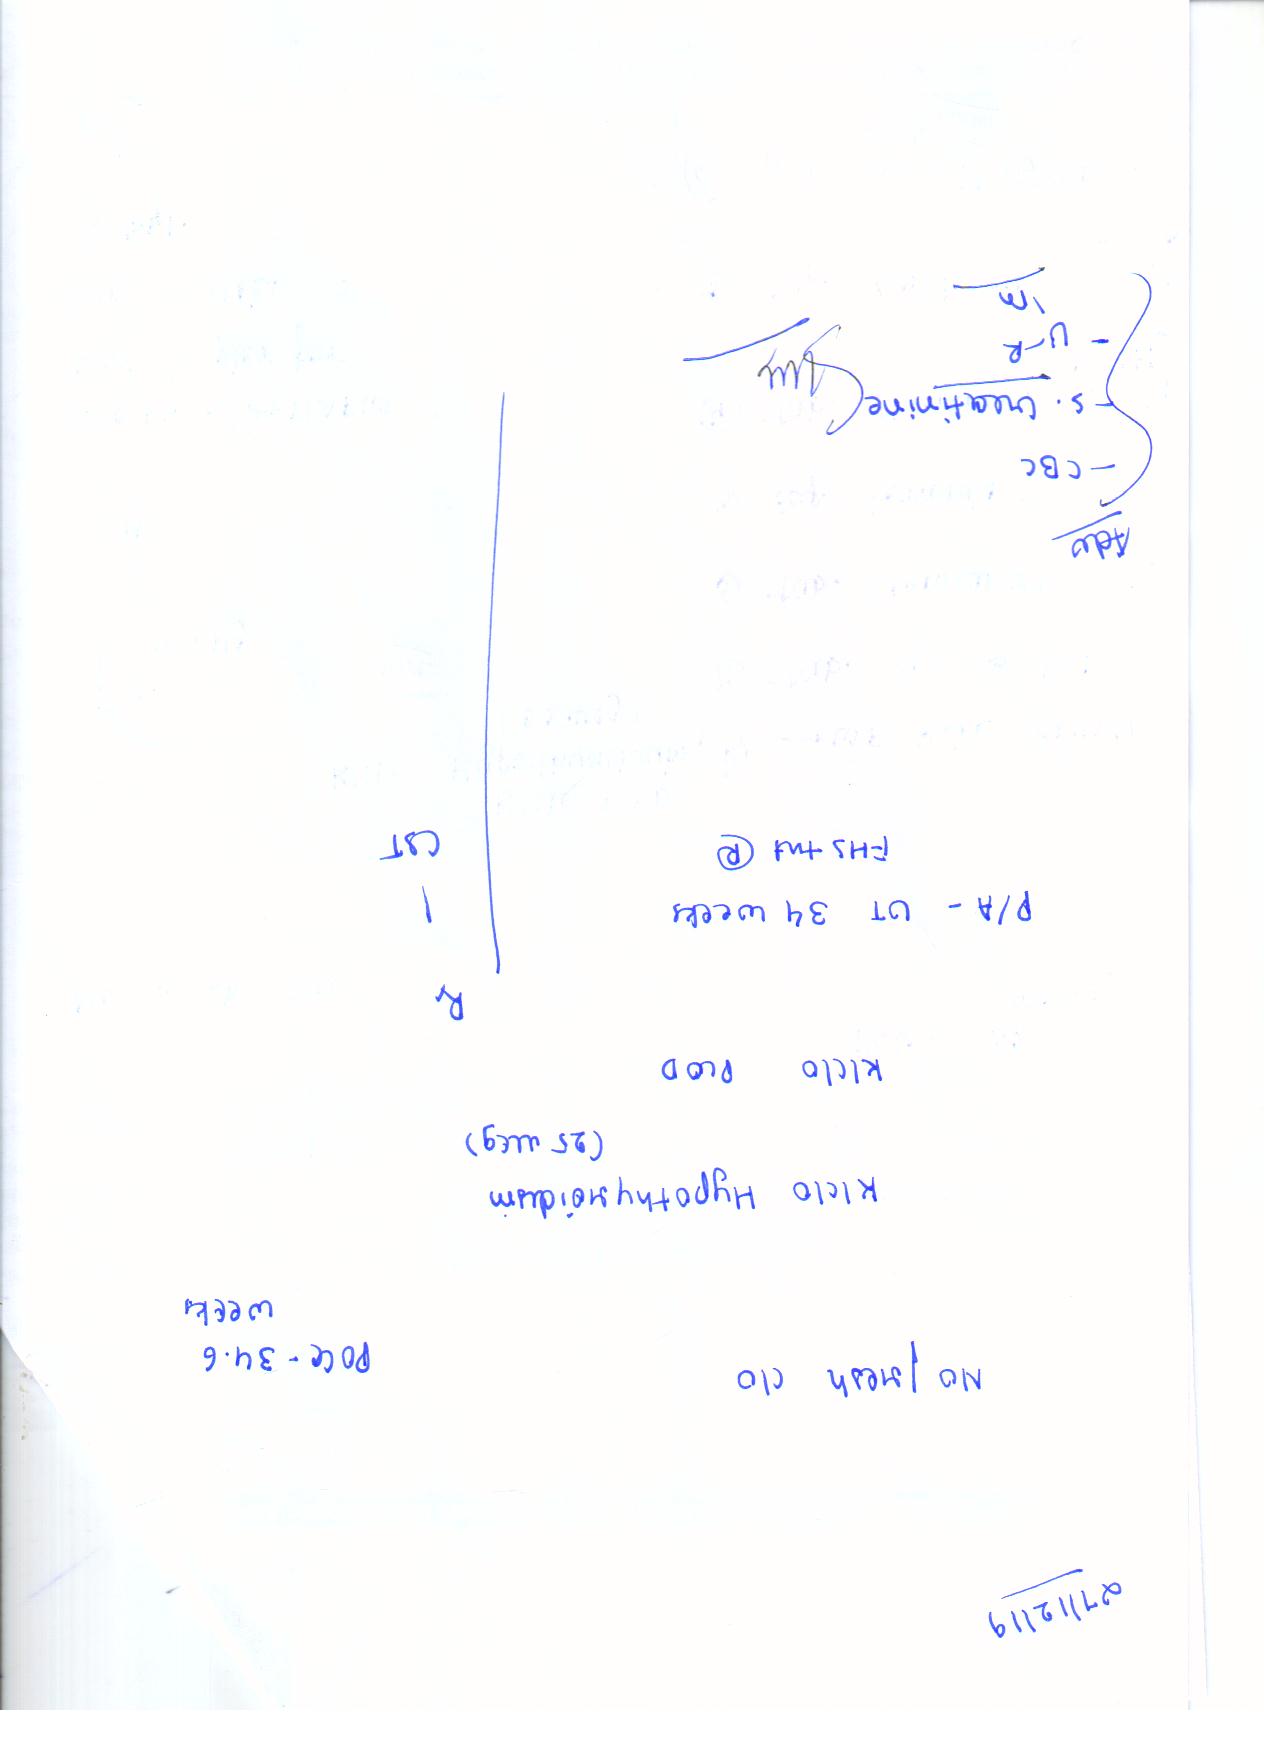 27/12/19
No fresh c/o
POG - 34.6
weeks
K/c/o Hypothyroidism
(25 mcg)
K/c/o PLOD
Rx
P/A - UT 34 weeks
FHS +nt Ⓡ
CST
Adv
- CBC
- S. Creatinine
- U-R
1m